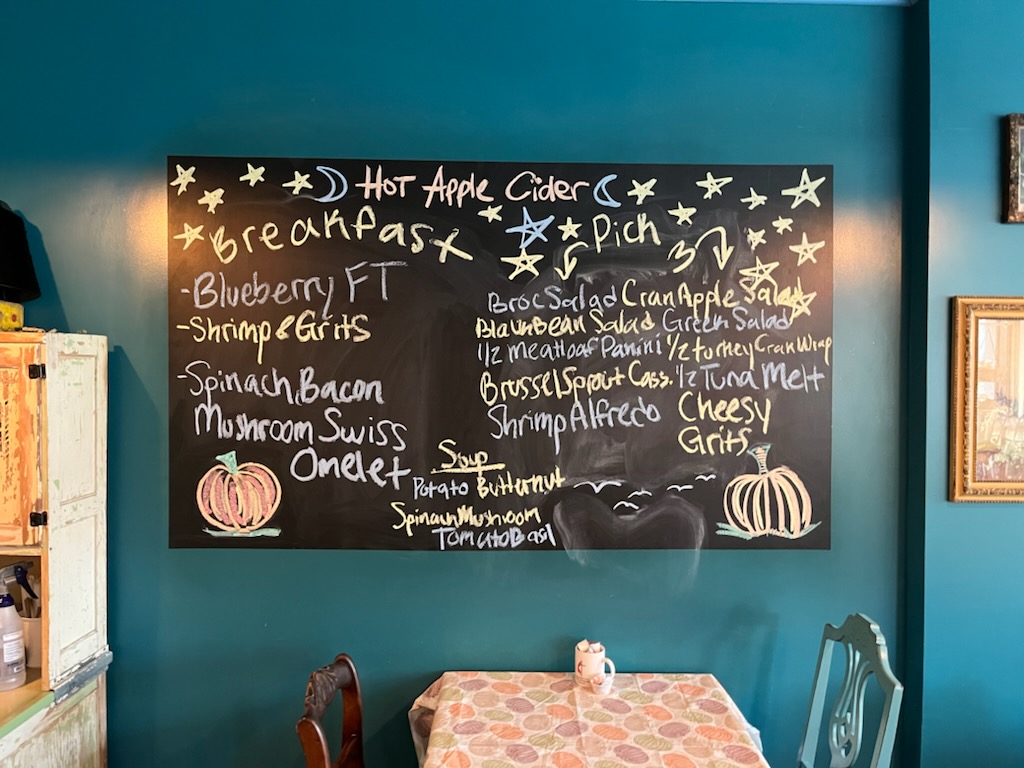 Hot Apple Cider
Breakfast
-Blueberry FT
-Shrimp & Grits
-Spinach, Bacon
Mushroom Swiss
Omelet
Pick 3
Broc Salad Cran Apple Salad
Black Bean Salad Green Salad
1/2 Meatloaf Panini 1/2 turkey Cran Wrap
Brussel Sprout Cass. 1/2 Tuna Melt
Shrimp Alfredo Cheesy
Grits
Soup
Potato Butternut
Spinach Mushroom
Tomato Basil